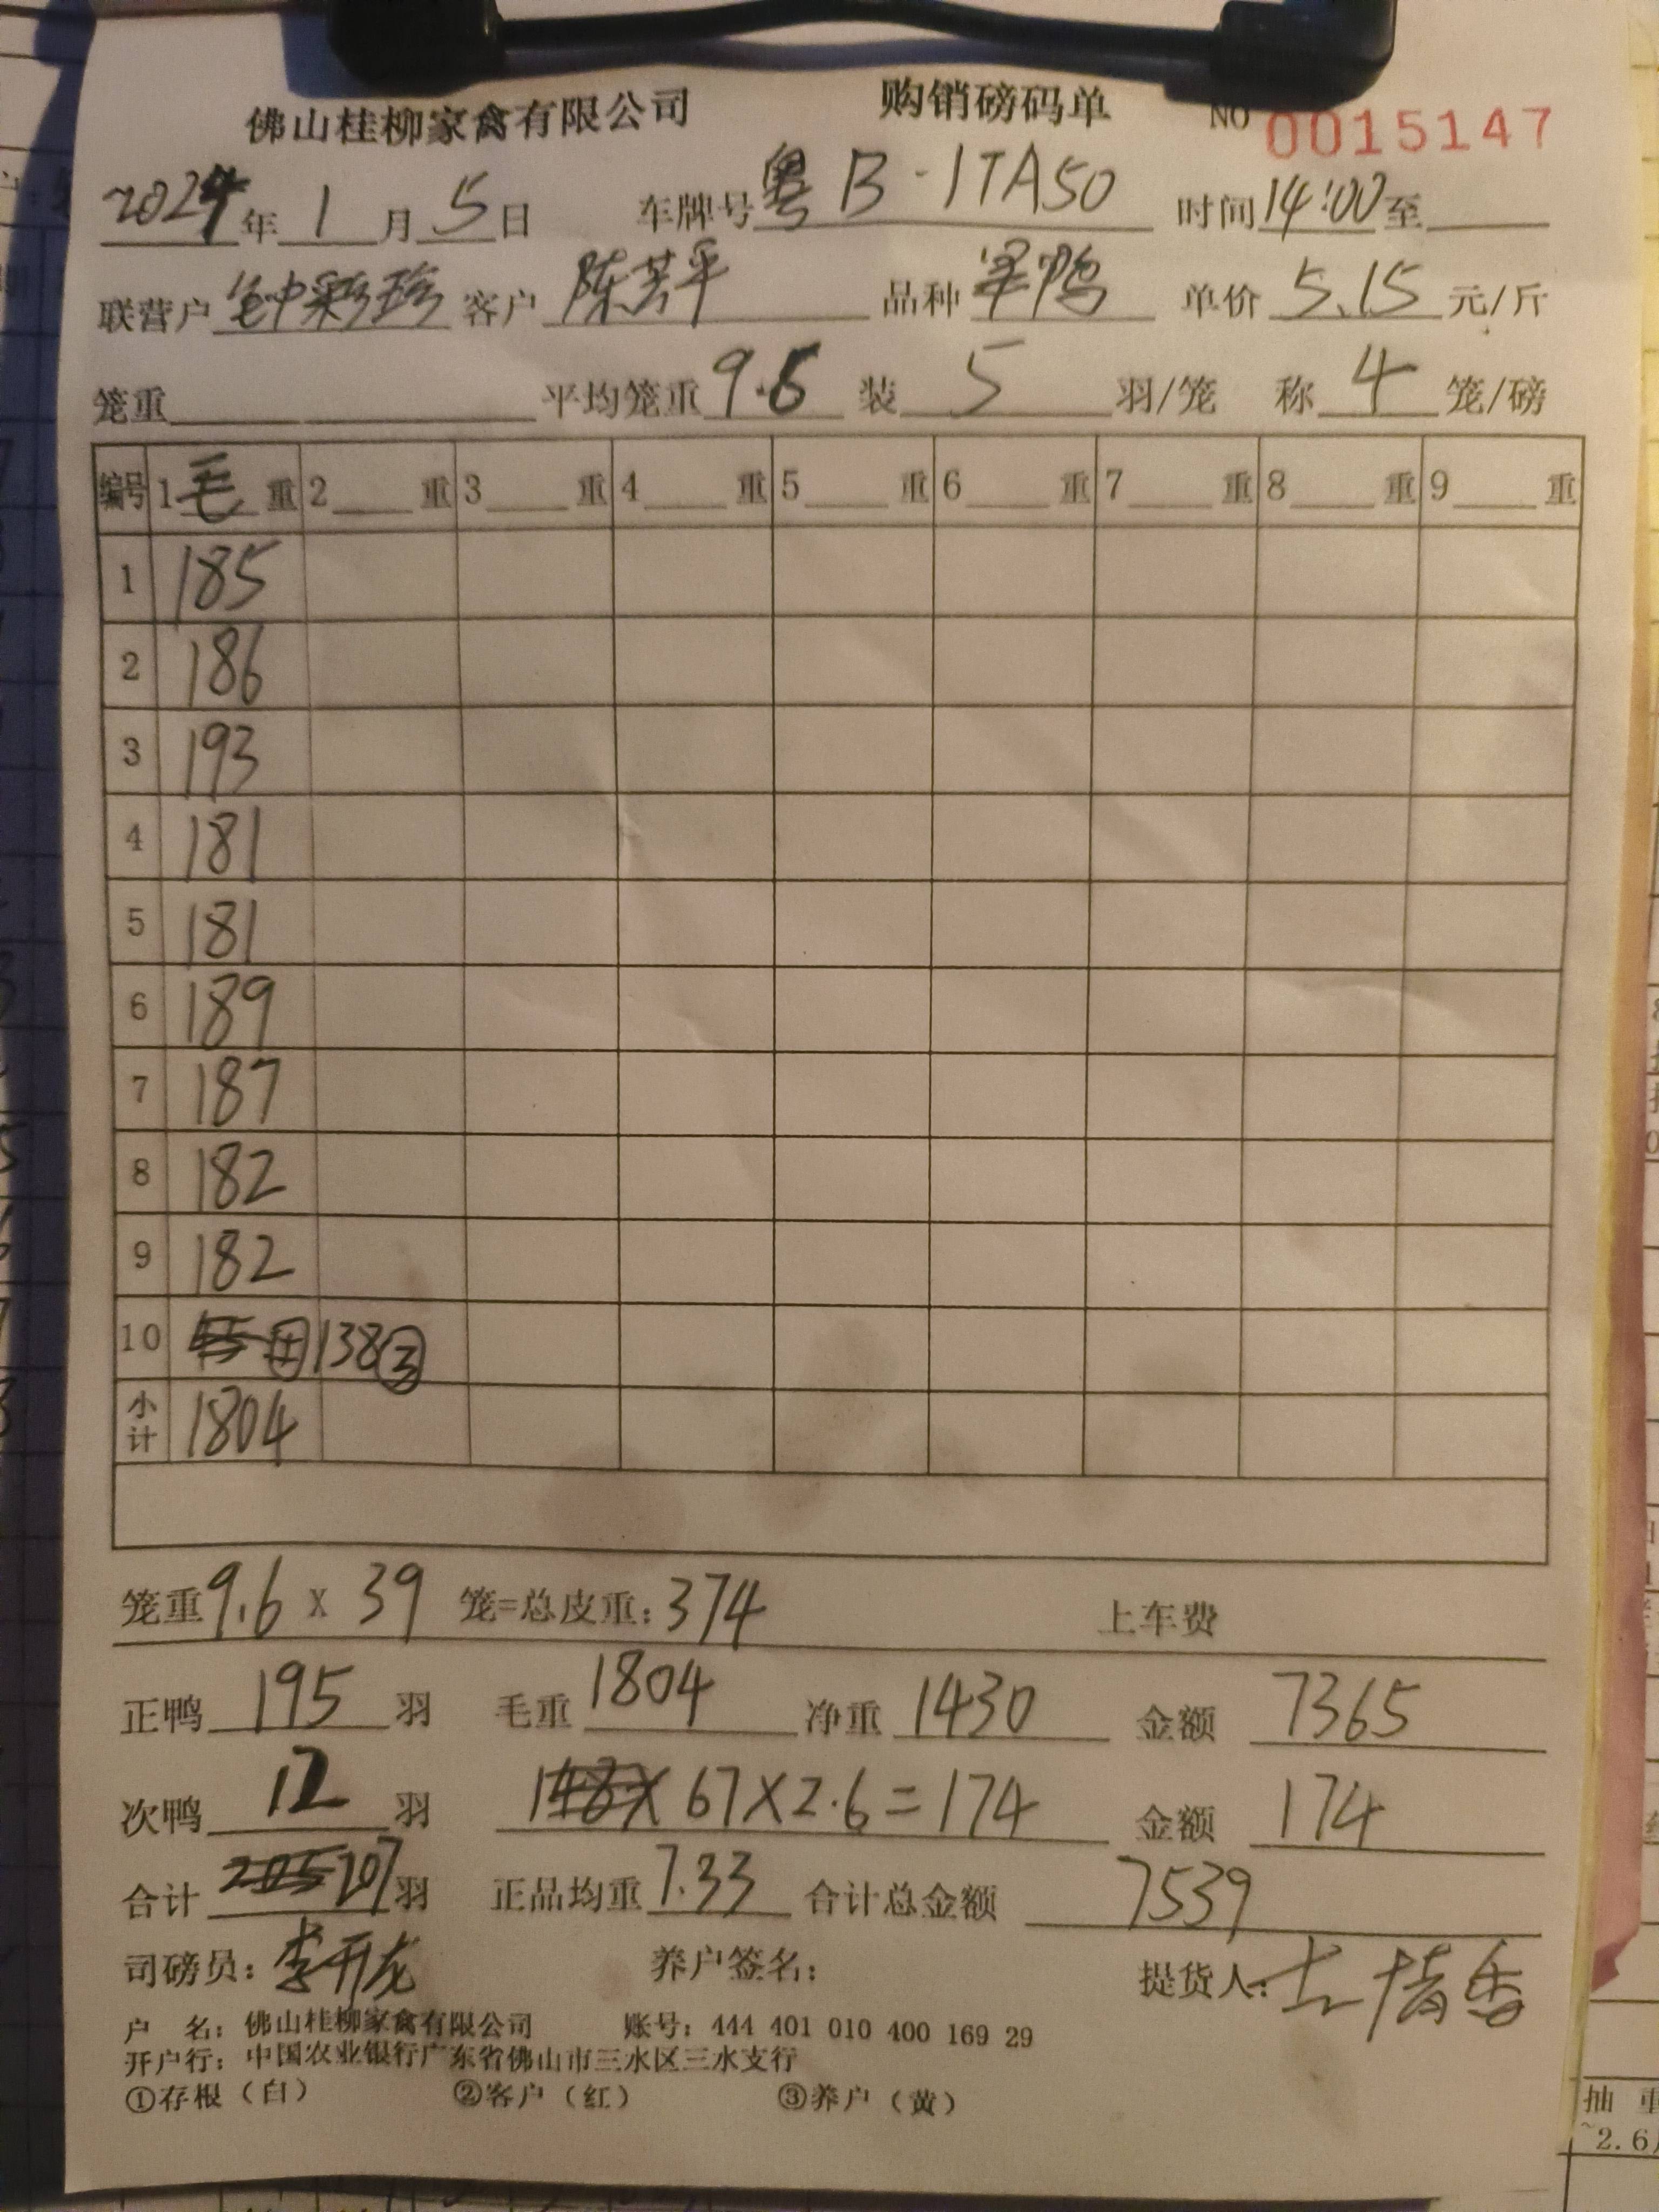 佛山桂柳家禽有限公司 购销磅码单 NO 0015147
2024年1月5日 车牌号粤B-1TA50 时间14:00至
联营户钟彩珍 客户陈芳平 品种 单价5.15元/斤
笼重 平均笼重9.6 装5羽/笼 称4笼/磅
编号 1毛重 2重 3重 4重 5重 6重 7重 8重 9重
1 185
2 186
3 193
4 181
5 181
6 189
7 187
8 182
9 182
10 138③
小计 1804
笼重9.6 X 39 笼=总皮重:374 上车费
正鸭195羽 毛重1804 净重1430 金额7365
次鸭12羽 67×2.6=174 金额174
合计207羽 正品均重7.33 合计总金额7539
司磅员:李开龙 养户签名: 提货人:
户 名:佛山桂柳家禽有限公司 账号:444 401 010 400 169 29
开户行:中国农业银行广东省佛山市三水区三水支行
①存根(白) ②客户(红) ③养户(黄)
抽 重
~2.6